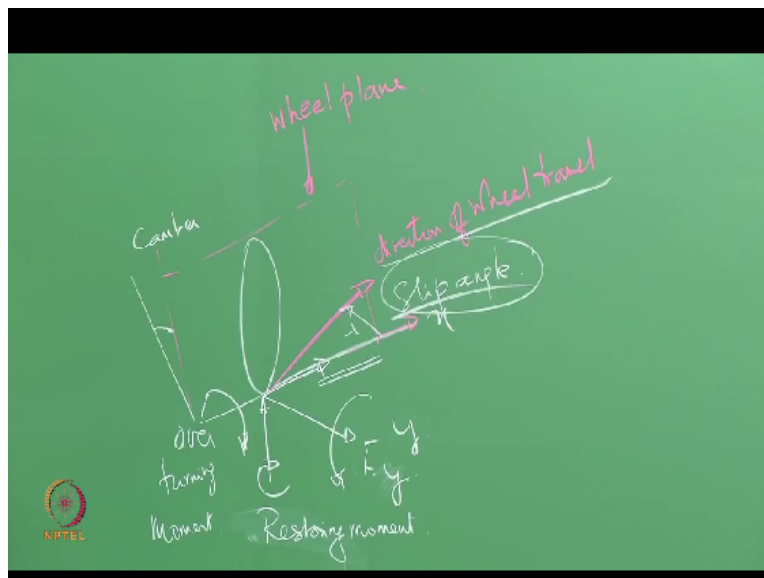 wheel plane
Camber
direction of wheel travel
Slip angle.
λ
x
y
Fy
Over
turning
Moment.
Restoring moment.
NPTEL